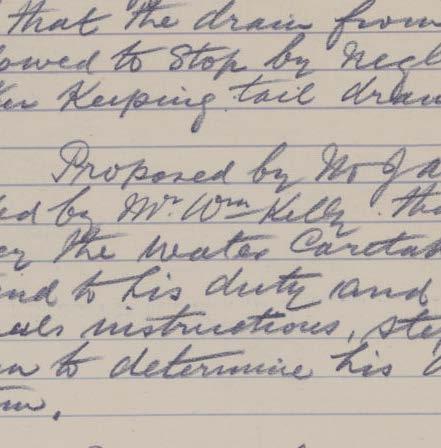 that the drain from
owed to Stop by Negl
Keeping tail drain
Proposed by Mr J
ed by Mr. Wm Kelly. the
the Water Caretak
end to his duty and
instructions, ste
to determine his